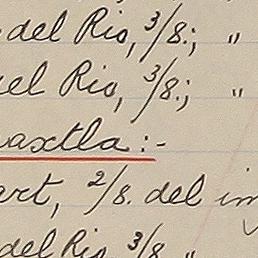 del Rio, 3/8.; "
del Rio, 3/8.; "
axtla:-
art, 2/8. del im
del Rio 3/8 "